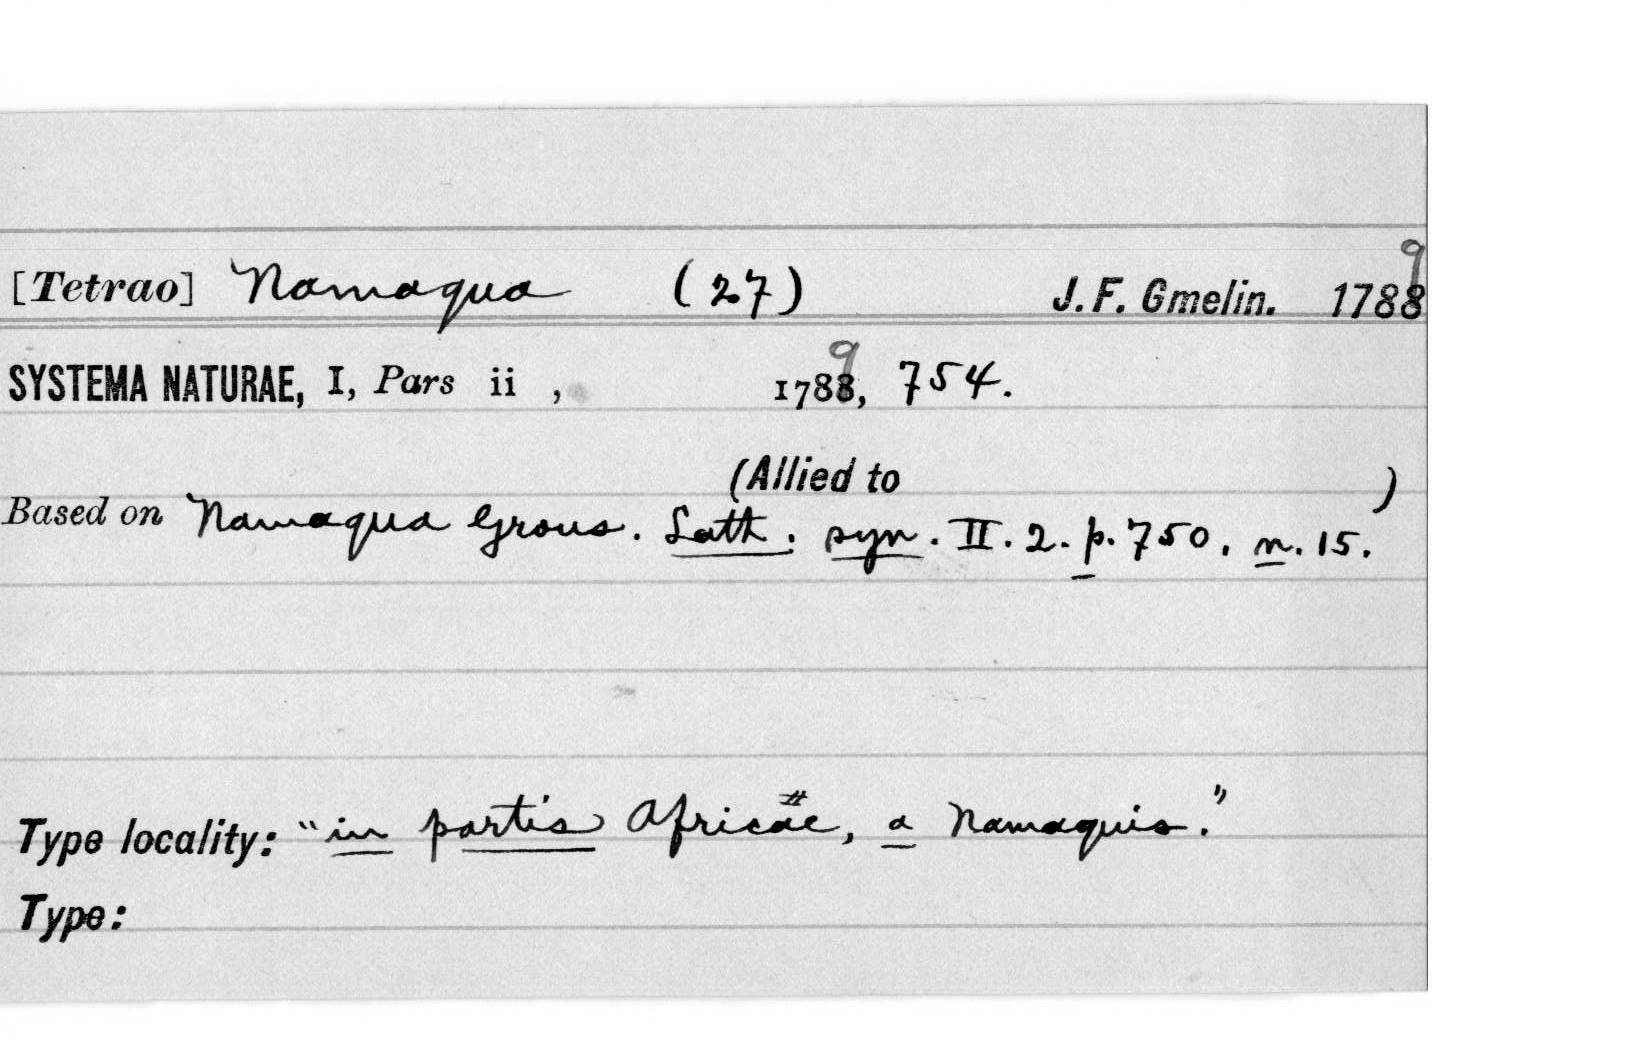 [Tetrao] Namaqua (27) J. F. Gmelin. 1789
SYSTEMA NATURAE, I, Pars ii , 1789, 754.
(Allied to )
Based on Namaqua Grous. Lath. syn. II. 2. p. 750. n. 15.
Type locality: "in partis Africae, a Namaquis."
Type: